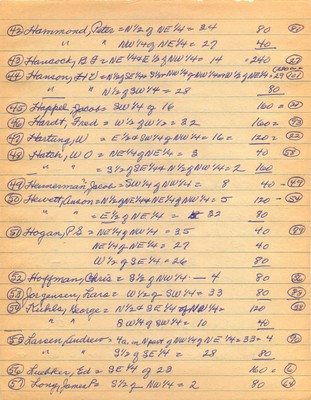 (42) Hammond, Peter = N½ of NE¼ = 34 80
" " NW¼ of NE¼ = 27 40
(43) Hancock, B F = NE¼ + E½ of NW¼ = 14 = 240
(44) Hanson,
" " N½ of SW¼ = 28 80
(45) Happel, Jacob = SW¼ of 16 160 =
(46) Hardt, Fred = W½ of W½ = 32 160 =
(47) Hartung, W = E½ + SW¼ of NW¼ = 16 = 120 =
(48) Hatch, W O = NE¼ of NE¼ = 3 40
" " = S½ of SE¼ + N½ of NW¼ = 2 160
(49) Hannerman, Jacob = SW¼ of NW¼ = 8 40 - (49)
(50) Hewett, Aaron = N½ of NE¼ + NE¼ of NW¼ = 5 120 - (54)
" " = E½ of NE¼ = 32 80
(51) Hogan, P S = NE¼ of NW¼ = 35 40
NE¼ of NE¼ = 27 40
W½ of SE¼ = 26 80
(52) Hoffman, Chris = S½ of NW¼ — 4 80
(53) Jorgensen, Lars = W½ of SW¼ = 33 80
(54) Kuhls, George = N½ + SE¼ of NW¼ = 120
" " SW¼ of SW¼ = 10 40
(55) Larsen, Andrew = 4a. in N part of NW¼ of NE¼ = 33 = 4
" " S½ of SE¼ = 28 80
(56) Luebker, Ed = SE¼ of 23 160 = (6)
(57) Long, James P = S½ of NW¼ = 2 80 (64)